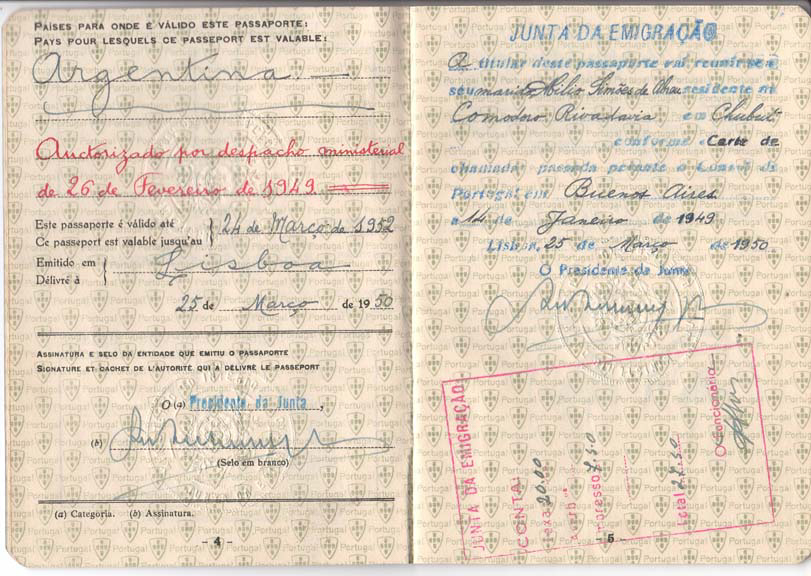 PAÍSES PARA ONDE É VÁLIDO ESTE PASSAPORTE:
PAYS POUR LESQUELS CE PASSEPORT EST VALABLE:
Argentina.
Auctorizado por despacho ministerial
de 26 de Fevereiro de 1949
Este passaporte é válido até
Ce passeport est valable jusqu'au
24 de Março de 1952
Emitido em
Délivré à
Lisboa
25 de Março de 1950
ASSINATURA E SELO DA ENTIDADE QUE EMITIU O PASSAPORTE
SIGNATURE ET CACHET DE L'AUTORITÉ QUI A DÉLIVRÉ LE PASSEPORT
O (a) Presidente da Junta,
(b)
(Selo em branco)
(a) Categoria. (b) Assinatura.
- 4 -
JUNTA DA EMIGRAÇÃO
O titular deste passaporte vai reunir-se a
seu marido, Simões de residente em
Comodoro Rivadavia em Chubut
conforme Carta de
chamada passada perante o Consul de
Portugal em Buenos Aires
a 14 de Janeiro de 1949
Lisboa, 25 de Março de 1950
O Presidente da Junta
JUNTA DA EMIGRAÇÃO
CONTA:
Taxa 20.00
Impresso 7.50
Total 27.50
O Funcionário
- 5 -